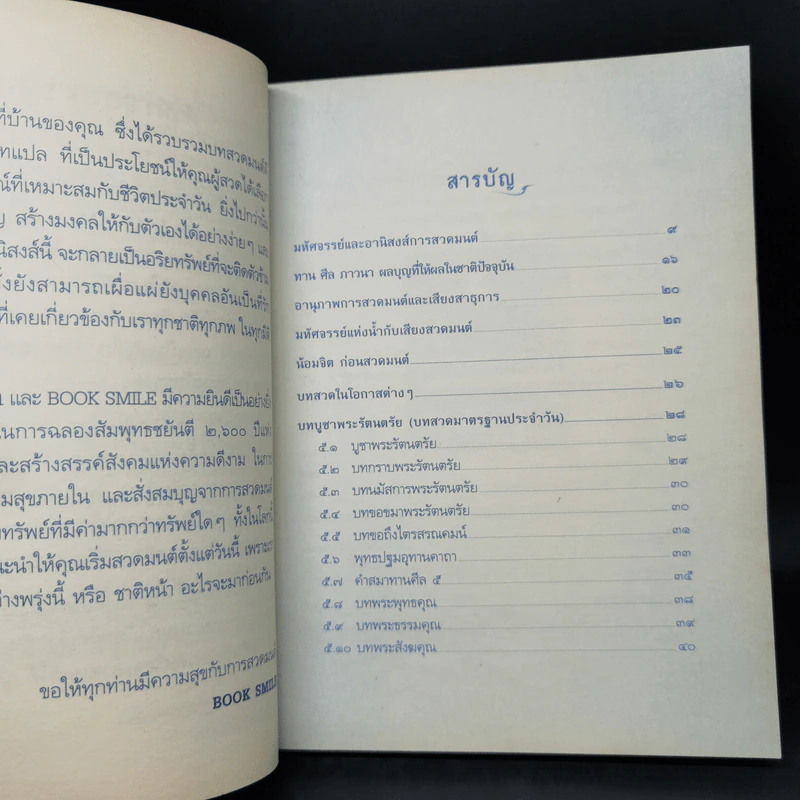 ที่บ้านของคุณ ซึ่งได้รวบรวมบทสวดมนต์
ทแปล ที่เป็นประโยชน์ให้คุณผู้สวดได้เลือก
ณ์ที่เหมาะสมกับชีวิตประจำวัน ยิ่งไปกว่านั้น
ญ สร้างมงคลให้กับตัวเองได้อย่างง่ายๆ และ
นิสงส์นี้ จะกลายเป็นอริยทรัพย์ที่จะติดตัวข้าม
ั้งยังสามารถเผื่อแผ่ยังบุคคลอันเป็นที่รัก
ที่เคยเกี่ยวข้องกับเราทุกชาติทุกภพ ในทุกมิติ
และ BOOK SMILE มีความยินดีเป็นอย่างยิ่ง
นการฉลองสัมพุทธชยันตี ๒,๖๐๐ ปีแห่ง
ละสร้างสรรค์สังคมแห่งความดีงาม ในการ
มสุขภายใน และสั่งสมบุญจากการสวดมนต์
ทรัพย์ที่มีค่ามากกว่าทรัพย์ใดๆ ทั้งในโลกนี้
นะนำให้คุณเริ่มสวดมนต์ตั้งแต่วันนี้ เพราะเรา
ว่างพรุ่งนี้ หรือ ชาติหน้า อะไรจะมาก่อนกัน
ขอให้ทุกท่านมีความสุขกับการสวดมนต์
BOOK SMILE
สารบัญ
มหัศจรรย์และอานิสงส์การสวดมนต์ ๙
ทาน ศีล ภาวนา ผลบุญที่ให้ผลในชาติปัจจุบัน ๑๖
อานุภาพการสวดมนต์และเสียงสาธุการ ๒๐
มหัศจรรย์แห่งน้ำกับเสียงสวดมนต์ ๒๓
น้อมจิต ก่อนสวดมนต์ ๒๕
บทสวดในโอกาสต่างๆ ๒๖
บทบูชาพระรัตนตรัย (บทสวดมาตรฐานประจำวัน) ๒๘
๕.๑ บูชาพระรัตนตรัย ๒๘
๕.๒ บทกราบพระรัตนตรัย ๒๙
๕.๓ บทนมัสการพระรัตนตรัย ๓๐
๕.๔ บทขอขมาพระรัตนตรัย ๓๐
๕.๕ บทขอถึงไตรสรณคมน์ ๓๑
๕.๖ พุทธปฐมอุทานคาถา ๓๓
๕.๗ คำสมาทานศีล ๕ ๓๕
๕.๘ บทพระพุทธคุณ ๓๘
๕.๙ บทพระธรรมคุณ ๓๙
๕.๑๐ บทพระสังฆคุณ ๔๐